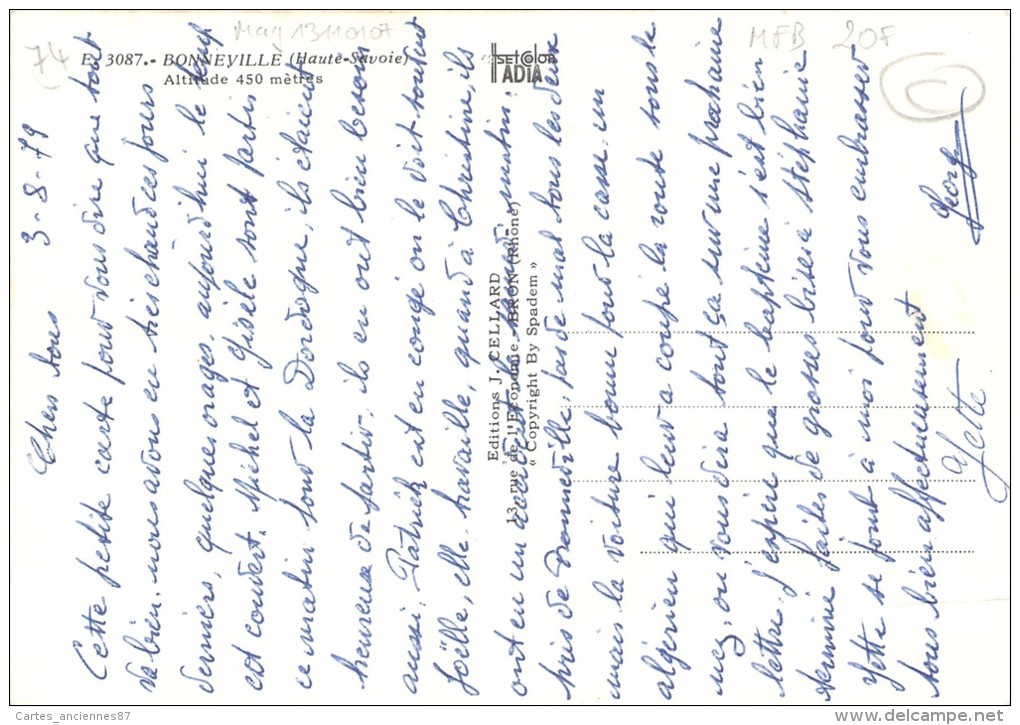 74
Mag 13110107
MFB 20F
E. 3087. - BONNEVILLE (Haute-Savoie)
Altitude 450 mètres
ADIA
Editions J. CELLARD
13, rue de l'Economie - BRON (Rhône)
« Copyright By Spadem »
3-8-79
Chers tous
Cette petite carte pour vous dire que tout
va bien. nous avons eu très chaud ces jours
derniers, quelques orages, aujourd'hui le temps
est couvert. Michel et Gisèle sont partis
ce matin pour la Dordogne, ils étaient
heureux de partir, ils en ont bien besoin
aussi, Patrick est en congé on le voit souvent
Joëlle, elle, travaille, quand à Christine, ils
ont eu un accident le samedi matin,
près de Bonneville, pas de mal tous les deux
mais la voiture bonne pour la casse. un
algérien qui leur a coupé la route sous le
nez, on vous dira tout ça sur une prochaine
lettre. J'espère que le baptême s'est bien
terminé faites de grosses bises à Stéphanie
Yette se joint à moi pour vous embrasser
tous bien affectueusement
Yette
Georges
Cartes_anciennes87